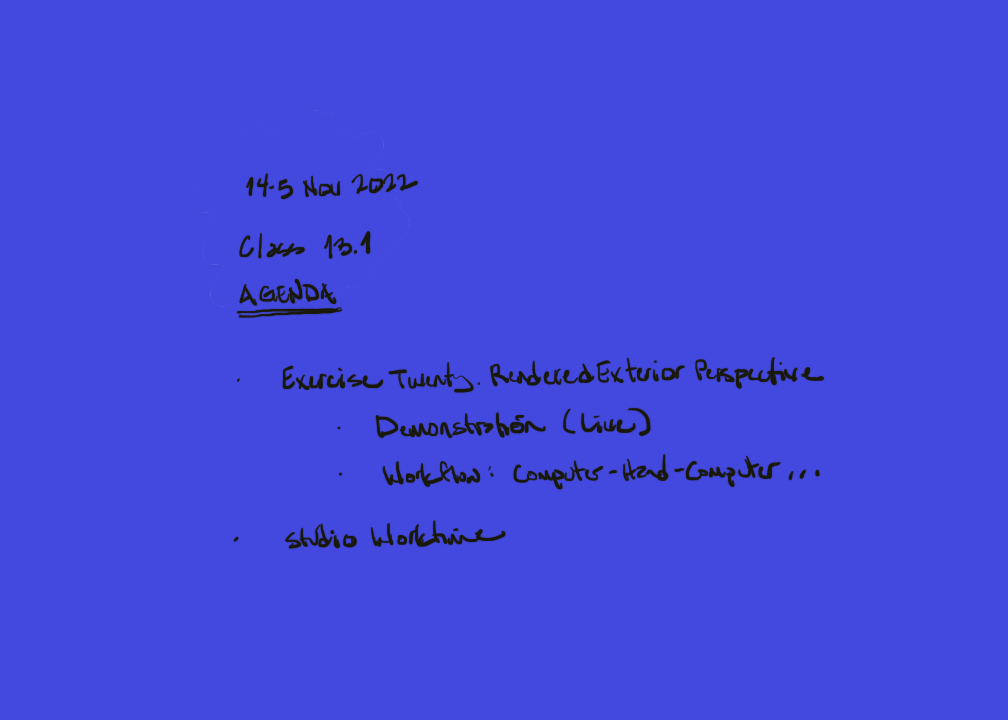 14-5 Nov 2022
Class 13.1
AGENDA
· Exercise Twenty. Rendered Exterior Perspective
· Demonstration (Live)
· Workflow: Computer-Hand-Computer...
· Studio Worktime